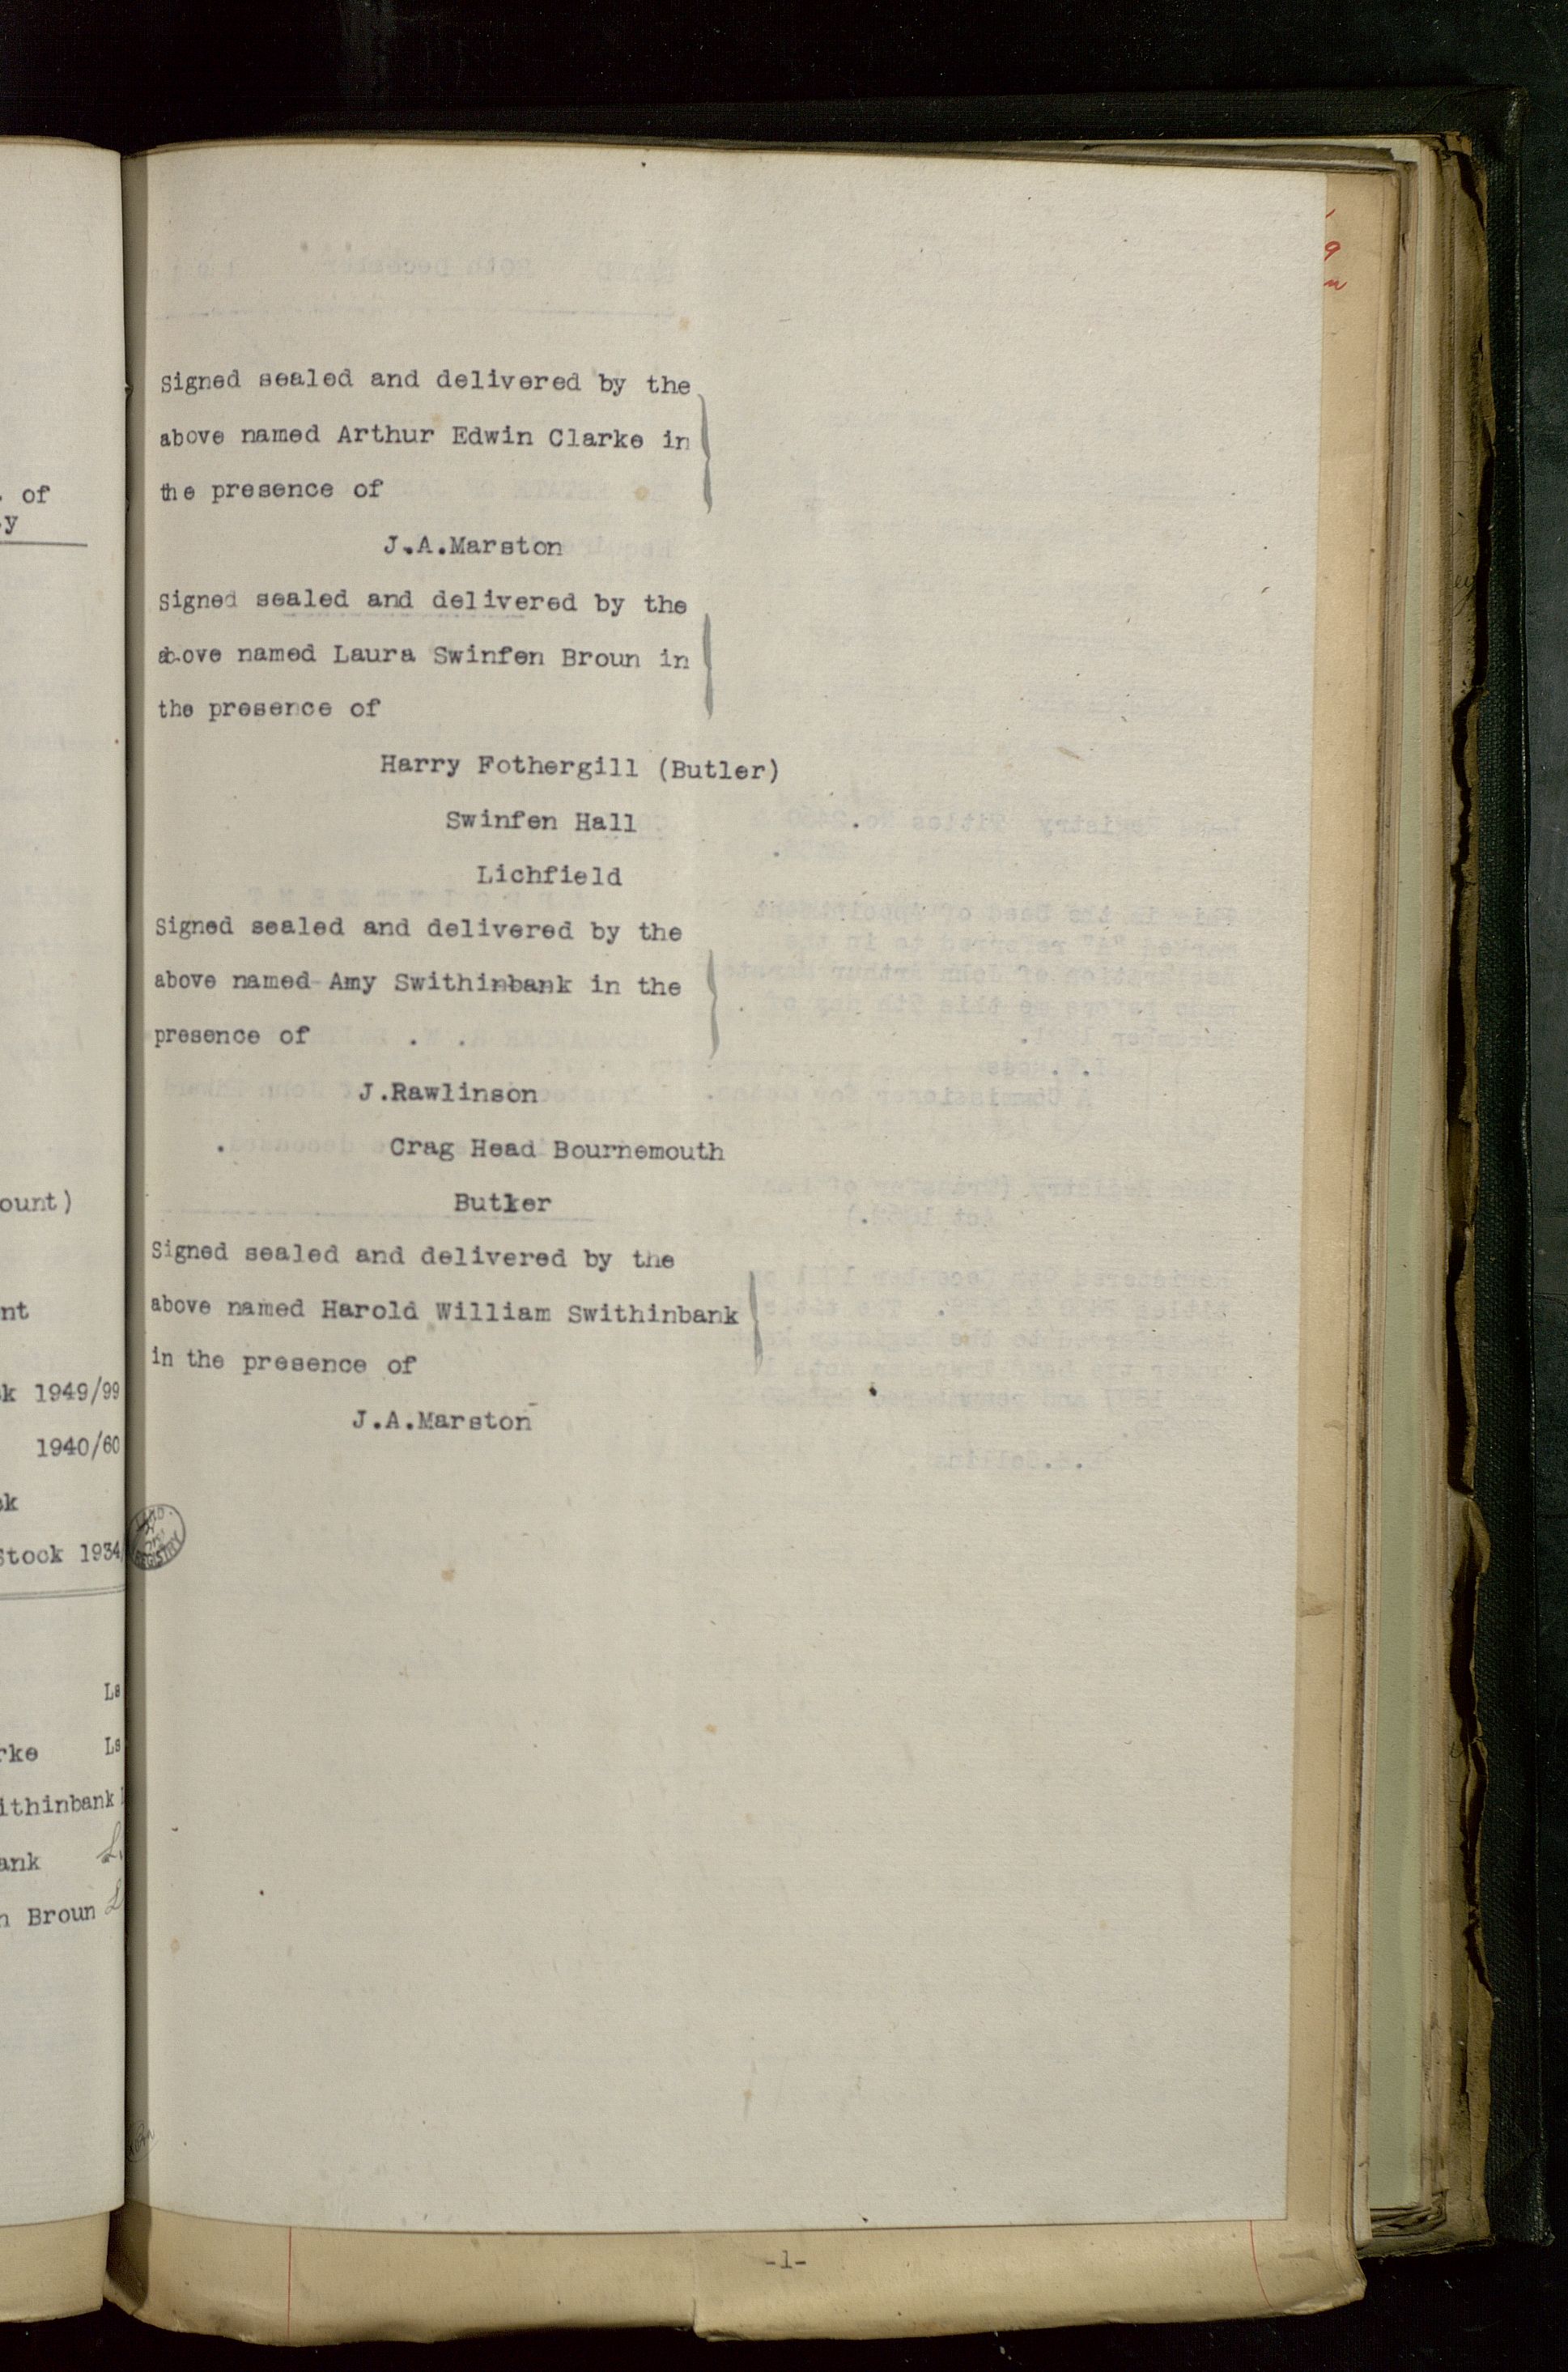 Signed sealed and delivered by the
above named Arthur Edwin Clarke in
the presence of
J.A.Marston
Signed sealed and delivered by the
above named Laura Swinfen Broun in
the presence of
Harry Fothergill (Butler)
Swinfen Hall
Lichfield
Signed sealed and delivered by the
above named Amy Swithinbank in the
presence of
J.Rawlinson
Crag Head Bournemouth
Butler
Signed sealed and delivered by the
above named Harold William Swithinbank
in the presence of
J.A.Marston
-1-
of
ount)
1949/99
1940/60
Stock 1934
Ls
Ls
Broun
REGISTRY